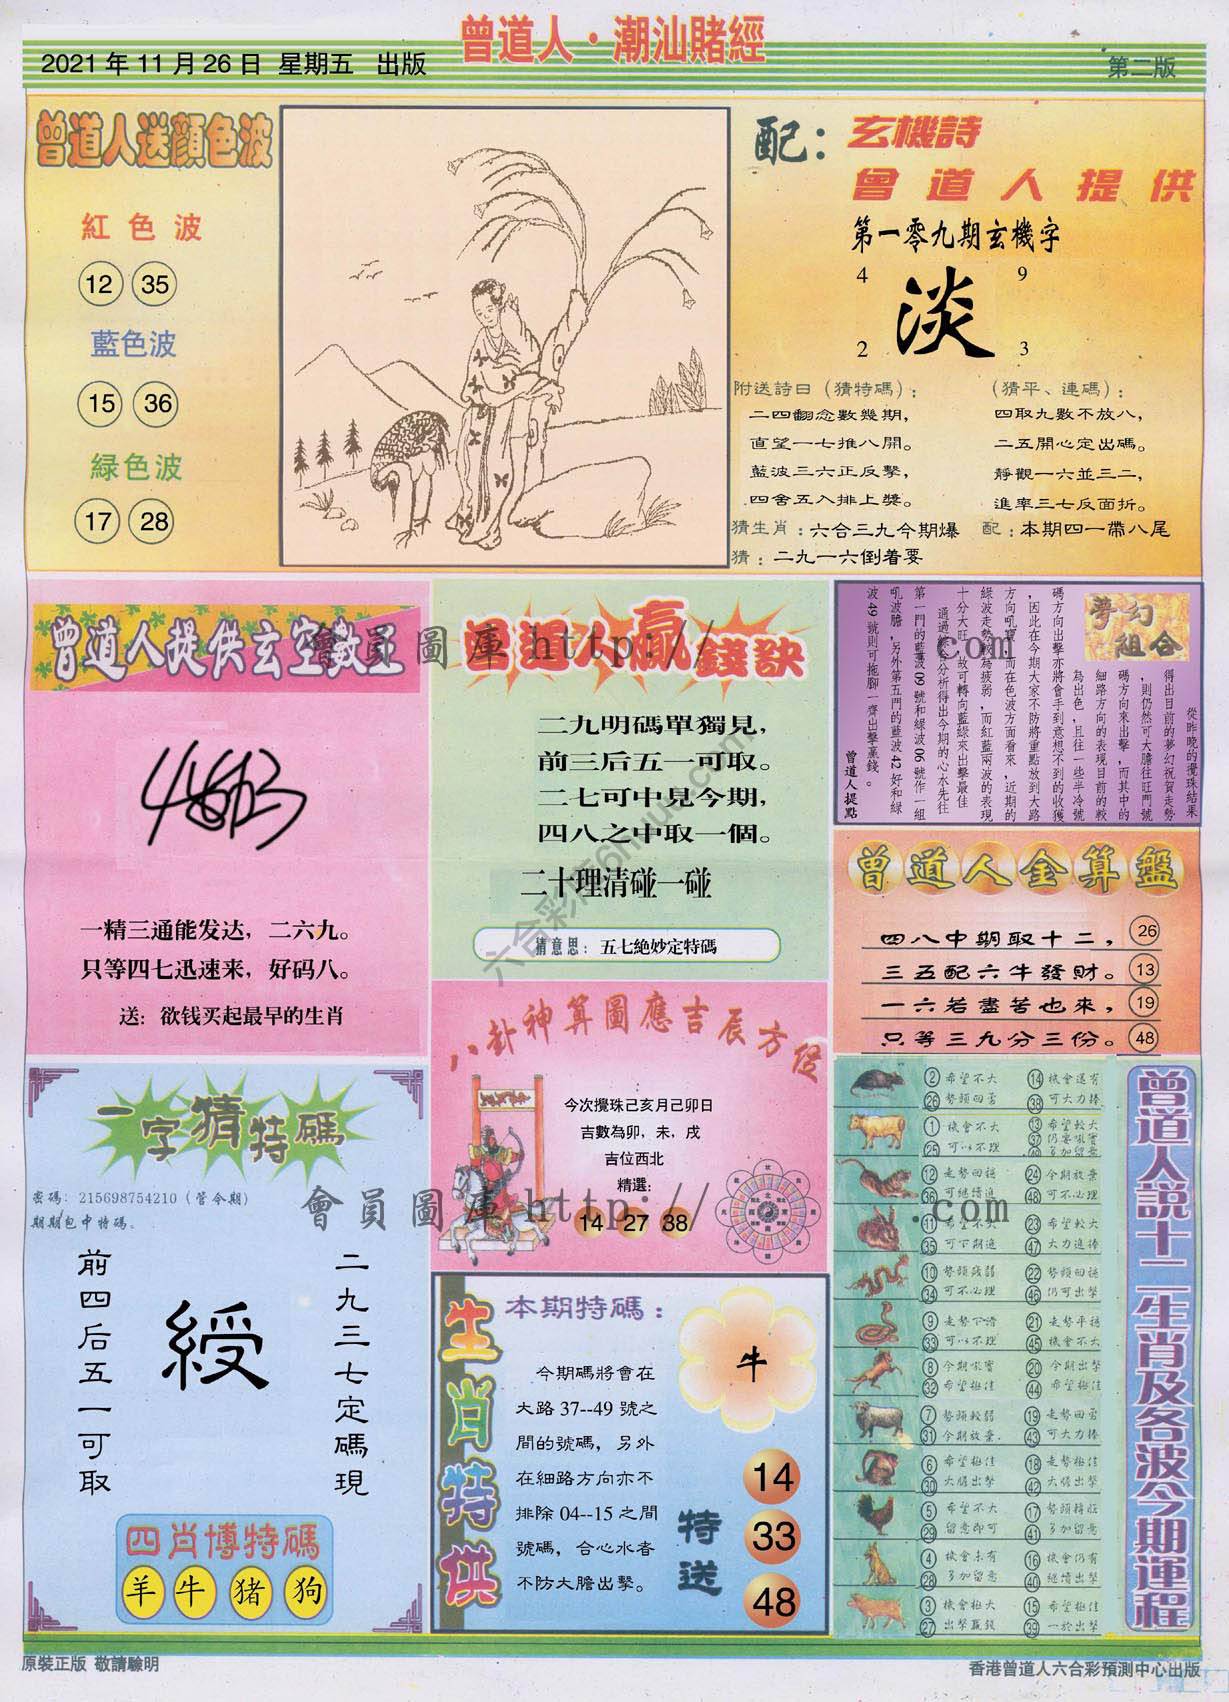 曾道人·潮汕賭經
2021年11月26日 星期五 出版
第二版
曾道人送顔色波
紅色波
12 35
藍色波
15 36
緑色波
17 28
配：玄機詩
曾道人提供
第一零九期玄機字
4 9
淡
2 3
附送詩曰（猜特碼）：
二四翻念數幾期，
直望一七推八開。
藍波三六正反擊，
四舍五入排上獎。
（猜平、連碼）：
四取九數不放八，
二五開心定出碼。
靜觀一六並三二，
進率三七反面折。
猜生肖：六合三九今期爆
配：本期四一帶八尾
猜：二九一六倒着要
曾道人提供玄空數王
一精三通能发达，二六九。
只等四七迅速来，好码八。
送：欲钱买起最早的生肖
曾道人贏錢訣
二九明碼單獨見，
前三后五一可取。
二七可中見今期，
四八之中取一個。
二十理清碰一碰
猜意思：五七絶妙定特碼
夢幻
組合
從昨晚的攪珠結果
得出目前的夢幻祝賀走勢
，則仍然可大膽往旺門號
碼方向來出擊，而其中的
細路方向的表現目前的較
為出色，且往一些半冷號
碼方向出擊亦將會手到意想不到的收獲
，因此在今期大家不防將重點放到大路
方向吼寶，而在色波方面看來，近期的
綠波走勢較為疲弱，而紅藍兩波的表現
十分大旺，故可轉向藍綠來出擊最佳
通過綜合分析得出今期的心水先往
第一門的藍波09號和綠波06號作一組
吼波膽，另外第五門的藍波42好和綠
波49號則可拖腳一齊出擊贏錢。
曾道人提點
曾道人金算盤
四八中期取十二， 26
三五配六牛發財。 13
一六若盡苦也來， 19
只等三九分三份。 48
八卦神算圖應吉辰方位
今次攪珠己亥月己卯日
吉數為卯，未，戌
吉位西北
精選：
14 27 38
一字猜特碼
密碼：215698754210（管今期）
期期包中特碼。
二九三七定碼現
綬
前四后五一可取
四肖博特碼
羊 牛 猪 狗
生肖特供
本期特碼：
牛
今期碼將會在
大路 37--49 號之
間的號碼，另外
在細路方向亦不
排除 04--15 之間
號碼，合心水者
不防大膽出擊。
特送
14
33
48
曾道人説十二生肖及各波今期運程
2 希望不大 14 機會還有
26 勢頭回勇 38 可大力捧
1 機會不大 13 希望較大
25 可以不理 37 49 多加留意
12 走勢回穩 24 今期放棄
36 可繼續追 48 可不必理
11 希望不大 23 希望較大
35 可下期追 47 大力追捧
10 勢頭疲弱 22 勢頭回穩
34 可不必理 46 仍可出擊
9 走勢下滑 21 走勢平穩
33 可以不理 45 機會不大
8 今期吼寶 20 今期出擊
32 希望極佳 44 希望極佳
7 勢頭較弱 19 走勢回勇
31 今期放棄 43 可大力捧
6 希望極佳 18 走勢極佳
30 大膽出擊 42 大膽出擊
5 希望不大 17 勢頭轉旺
29 留意即可 41 多加留意
4 機會未有 16 機會仍有
28 多加留意 40 繼續出擊
3 機會極大 15 希望極佳
27 出擊贏錢 39 一於出擊
會員圖庫 http:// .com
會員圖庫 http:// .com
原裝正版 敬請驗明
香港曾道人六合彩預測中心出版